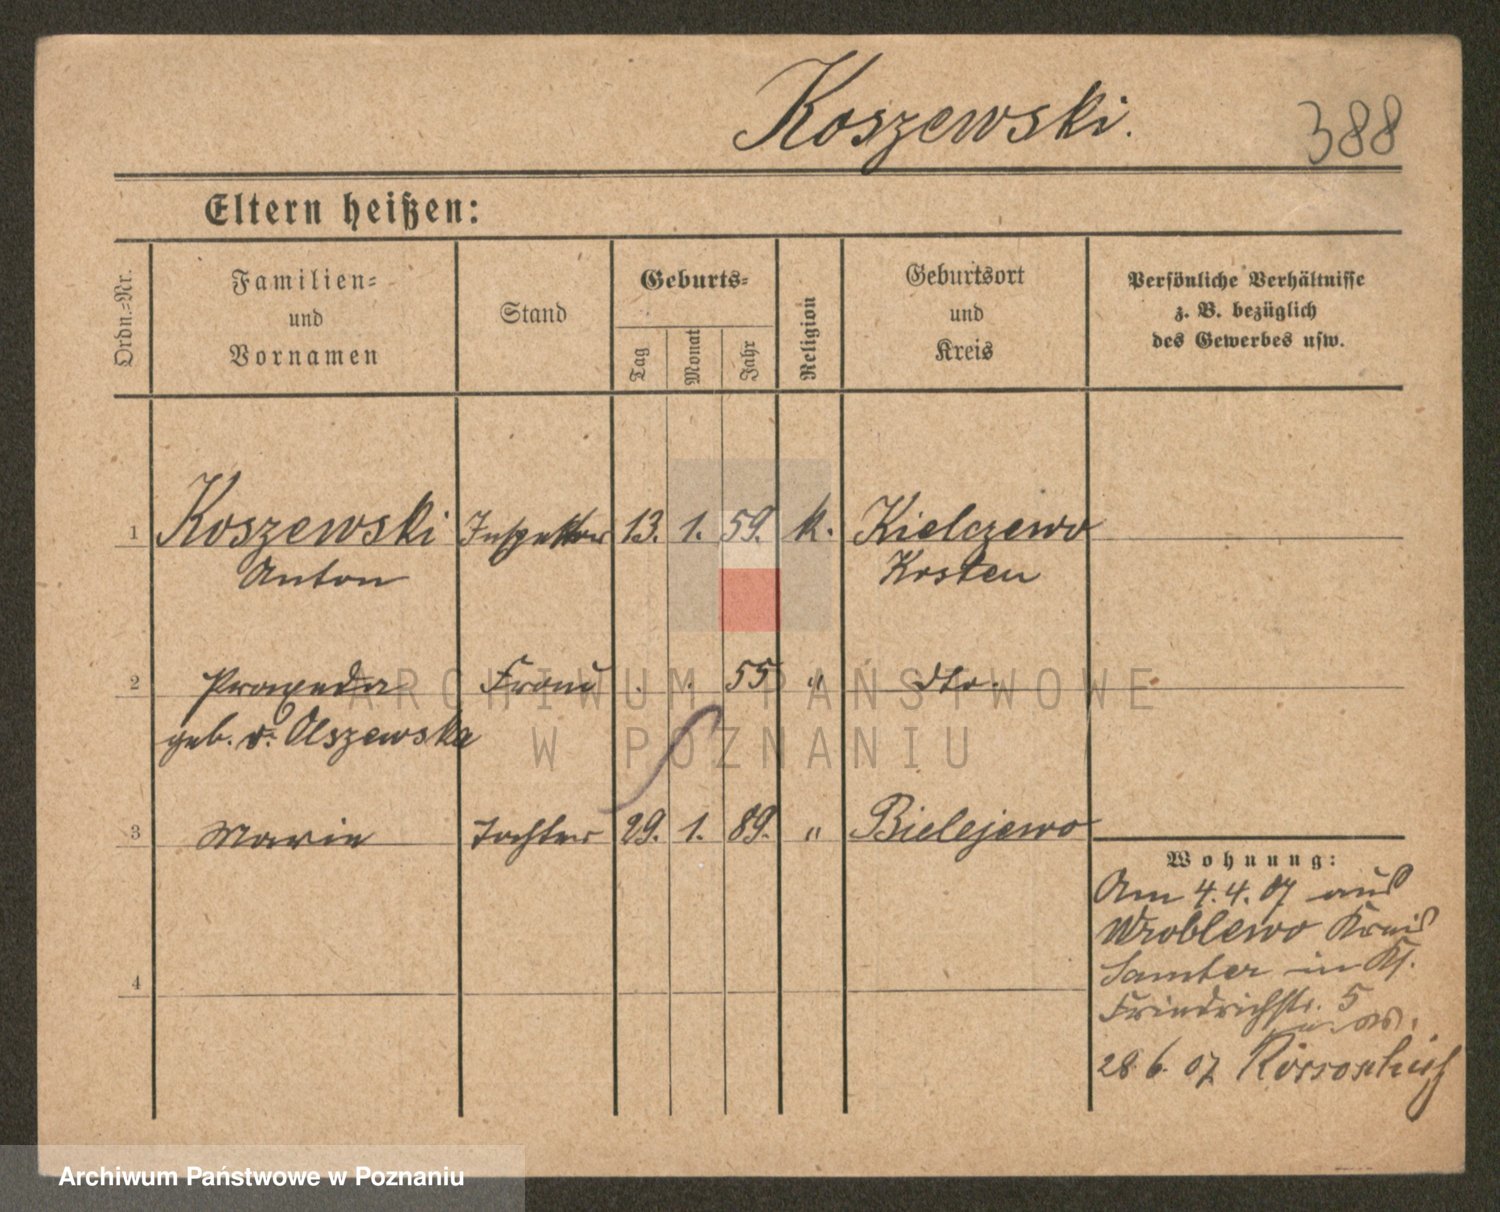 Koszewski.
388
Eltern heißen:
Ordn.-Nr.
Familien-
und
Vornamen
Stand
Geburts-
Tag
Monat
Jahr
Religion
Geburtsort
und
Kreis
Persönliche Verhältnisse
z. B. bezüglich
des Gewerbes usw.
1 Koszewski Inspektor 13. 1. 59. k. Kielczewo
Anton Kosten
2 Praxeda Frau . . 55 " dto.
geb. v. Olszewska
3 Marie Tochter 29. 1. 89. " Bielejewo
4
Wohnung:
Am 4.4.07 aus
Wroblewo Kreis
Samter in Kj.
Friedrichstr. 5
28. 6. 07
ARCHIWUM PAŃSTWOWE
W POZNANIU
Archiwum Państwowe w Poznaniu